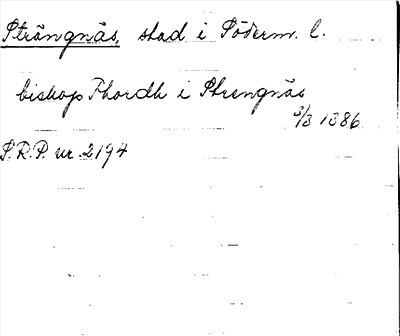 Strängnäs, stad i Söderm. l.
biskop Thordh i Strengnäs
3/3 1386
S.R.P. nr 2194